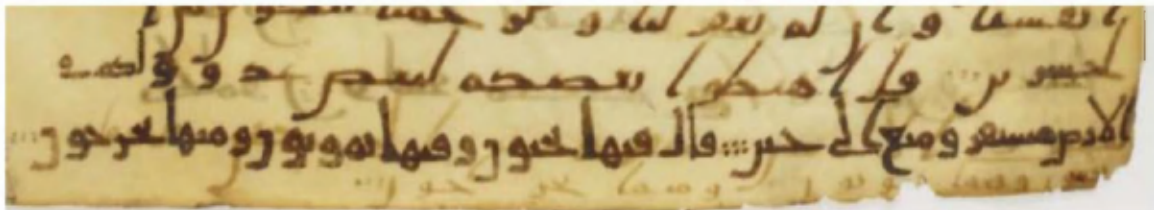 انفسنا و ا ن لم تغفر لنا و تر حمنا لنكونن من ا
لخسر ين قل ا هبطو ا بعضكم لبعض عد و و لكم في
الارض مستقر ومتع الى حين قل فيها تحيون وفيها تموتون ومنها تخرجون